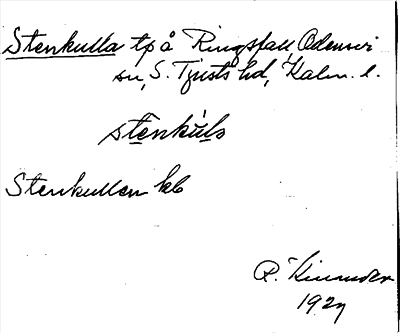 Stenkulla tp å Ringsfall, Odensvi
sn, S. Tjusts hd, Kalm. l.
stenkúls
Stenkullen kb
R. Kinander
1927